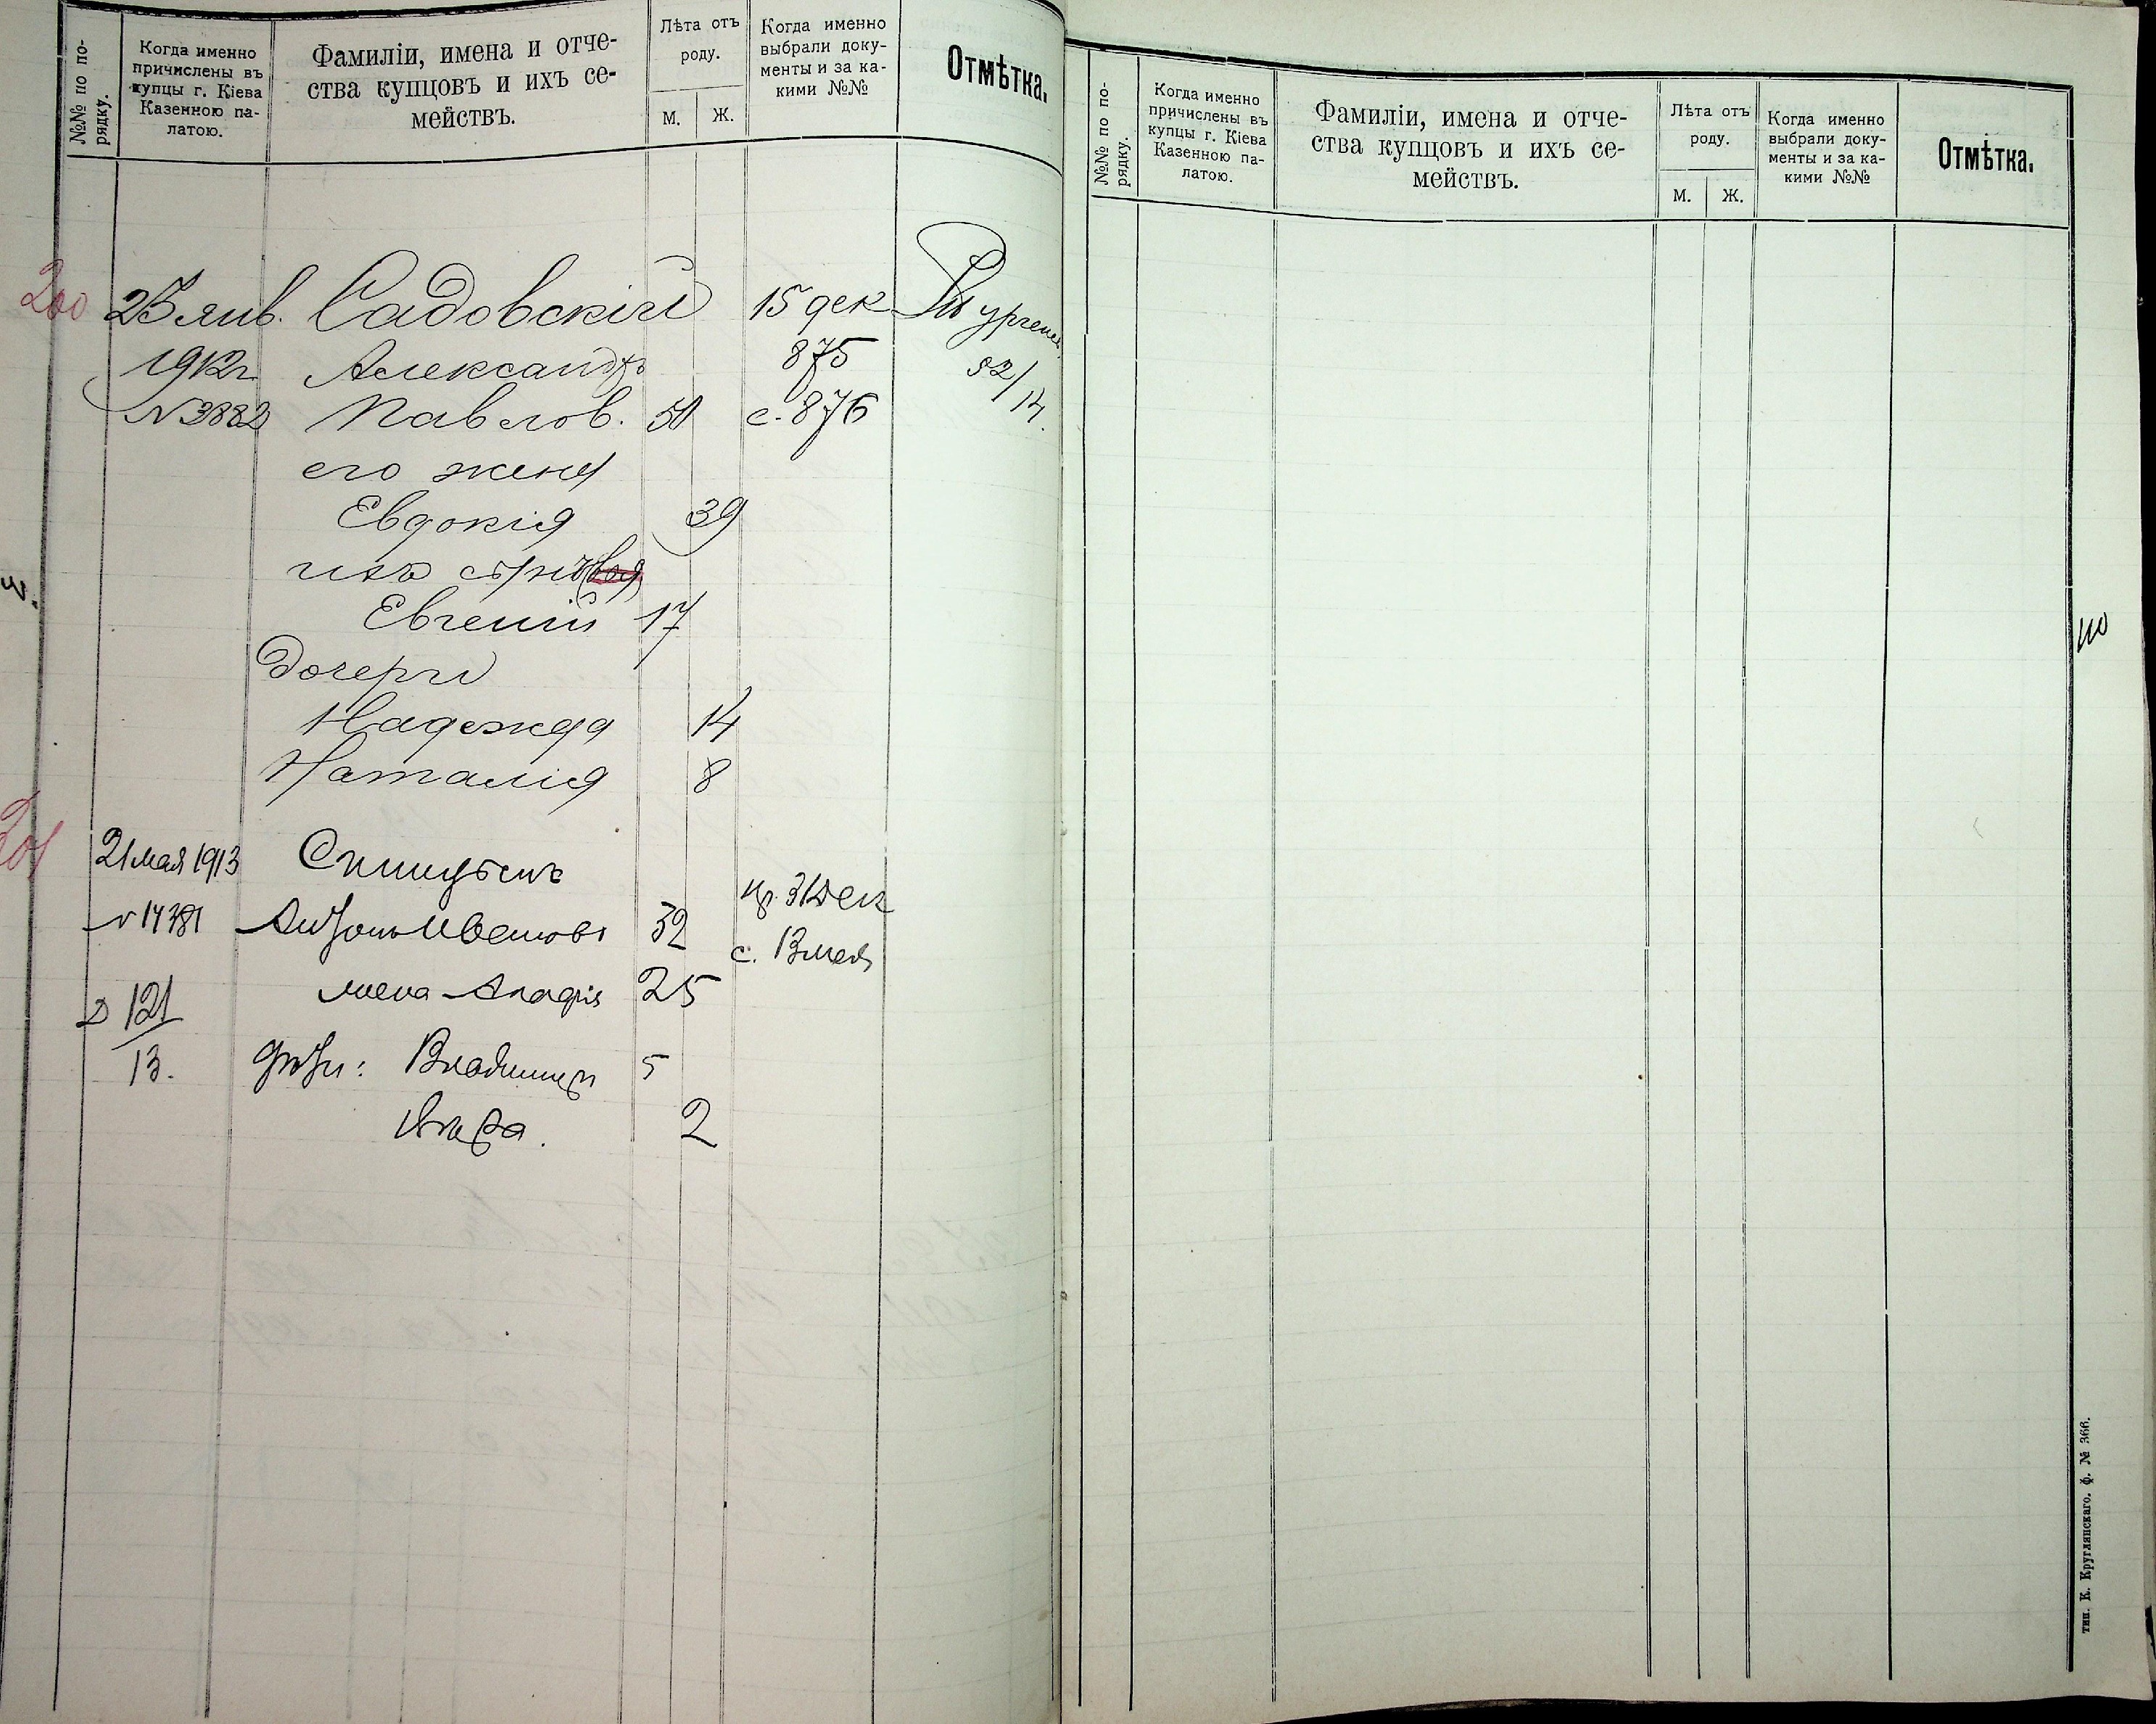 №№ по по-
рядку.
Когда именно
причислены въ
купцы г. Кіева
Казенною па-
латою.
Фамиліи, имена и отче-
ства купцовъ и ихъ се-
мействъ.
Лѣта отъ
роду.
М. Ж.
Когда именно
выбрали доку-
менты и за ка-
кими №№
Отмѣтка.
200 25 янв. Садовскій 15 дек
1912 г. Александръ 875
N 3882 Павлов. 51 с. 876
52/14.
его жена
Евдокія 39
ихъ сынъ
Евгеній 17
дочери
Надежда 14
Наталія 8
201 21 мая 1913
Антонъ Иванов 32 пр. 31 Дек
с.
жена 25
121
13. дѣти: Владиміръ 5
Вѣра. 2
№№ по по-
рядку.
Когда именно
причислены въ
купцы г. Кіева
Казенною па-
латою.
Фамиліи, имена и отче-
ства купцовъ и ихъ се-
мействъ.
Лѣта отъ
роду.
М. Ж.
Когда именно
выбрали доку-
менты и за ка-
кими №№
Отмѣтка.
тип. К. Круглянскаго. ф. № 366.